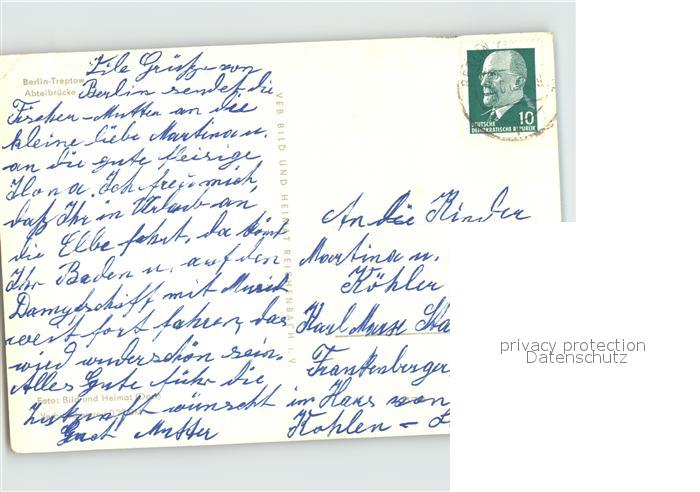 Berlin-Treptow
Abteibrücke
Vile Grüße von
Berlin sendet die
Fischer-Mutter an die
kleine liebe Martina u.
an die gute fleisige
Ilona. Ich freu mich,
daß Ihr in Urlaub an
die Elbe fahrt, da könt
Ihr Baden u. auf den
Dampfschiff mit Musik
weit fort fahren, das
wird wunderschön sein.
Alles Gute führ die
Zukunft wünscht
Mutter
Foto: Bild und Heimat
VEB BILD UND HEIMAT REICHENBACH I. V.
DEUTSCHE
DEMOKRATISCHE REPUBLIK
10
An die Kinder
Martina u.
Köhler
Karl Marx Sta
Frankenberger
im Haus von
Kohlen -
privacy protection
Datenschutz